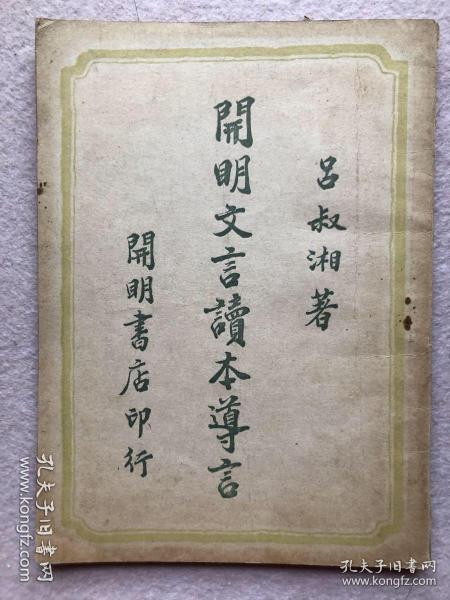 呂叔湘著
開明文言讀本導言
開明書店印行
孔夫子旧书网
孔夫子旧书网
www.kongfz.com